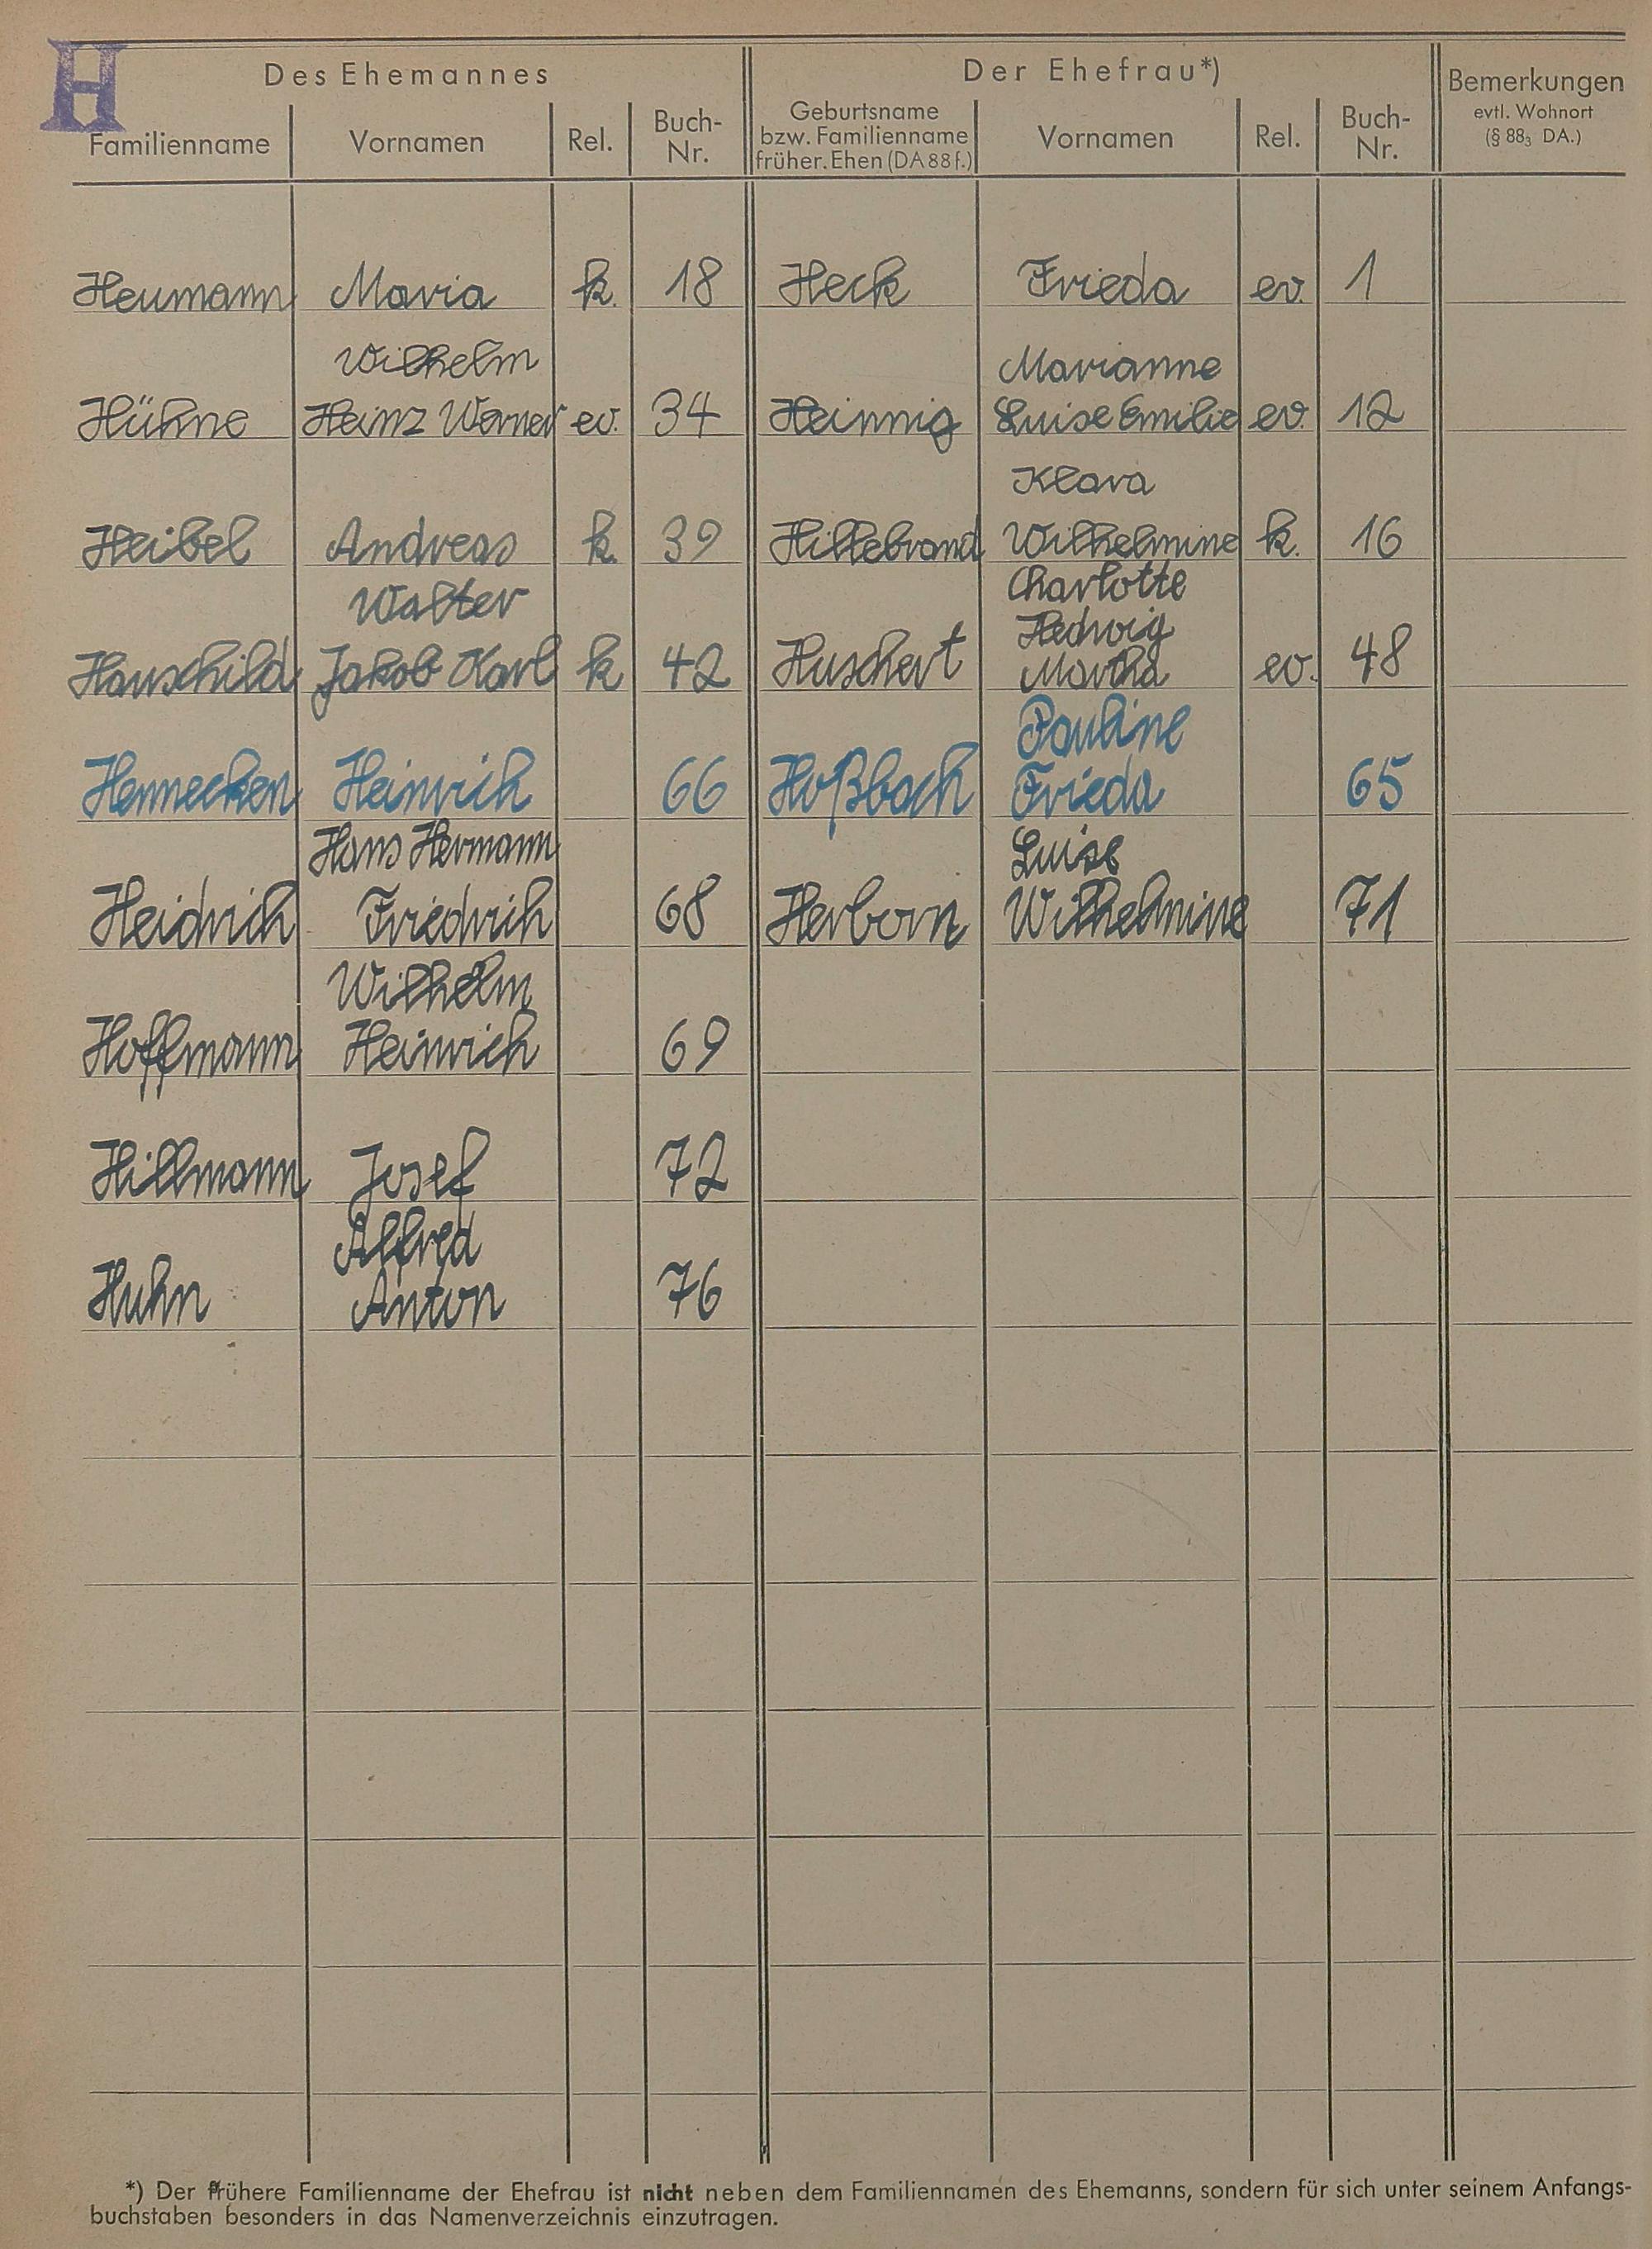 H
Des Ehemannes Der Ehefrau*) Bemerkungen evtl. Wohnort (§ 88₃ DA.)
Familienname Vornamen Rel. Buch-Nr. Geburtsname bzw. Familienname früher. Ehen (DA 88 f.) Vornamen Rel. Buch-Nr.
Heumann Maria k. 18 Heck Frieda ev. 1
Wilhelm Marianne
Hühne Heinz Werner ev. 34 Heinnig Luise Emilie ev. 12
Klara
Heibel Andreas k. 39 Hillebrand Wilhelmine k. 16
Walter Charlotte
Hedwig
Hauschild Jakob Karl k 42 Huschert Martha ev. 48
Pauline
Hennecken Heinrich 66 Hoßbach Frieda 65
Hans Hermann Luise
Heidrich Friedrich 68 Herborn Wilhelmine 71
Wilhelm
Hoffmann Heinrich 69
Hillmann Josef 72
Alfred
Huhn Anton 76
*) Der frühere Familienname der Ehefrau ist nicht neben dem Familiennamen des Ehemanns, sondern für sich unter seinem Anfangs-
buchstaben besonders in das Namenverzeichnis einzutragen.